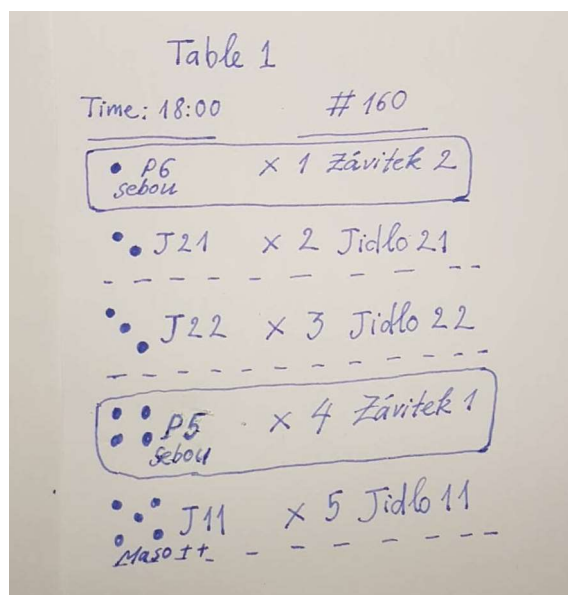 Table 1
Time: 18:00 #160
• P6 × 1 Závitek 2
sebou
J21 × 2 Jidlo 21
J22 × 3 Jidlo 22
P5 × 4 Závitek 1
sebou
J11 × 5 Jidlo 11
Maso ++